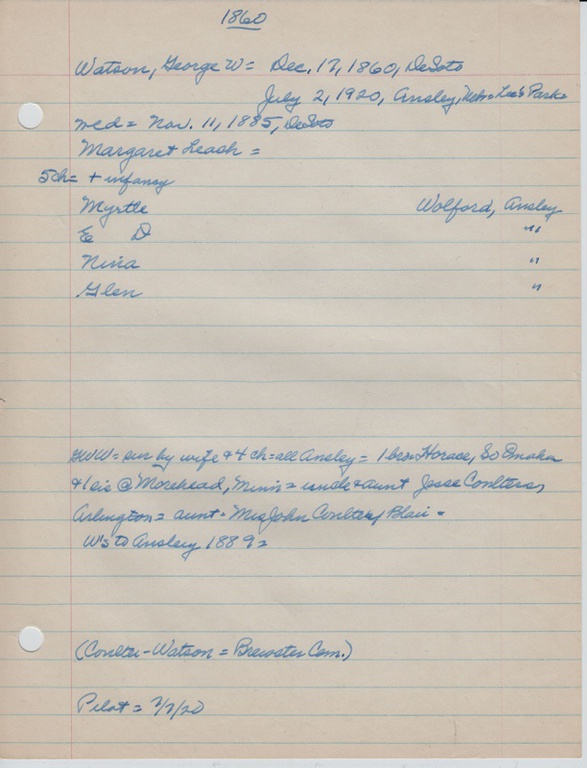 1860
Watson, George W = Dec. 17, 1860, DeSoto
July 2, 1920, Ansley, Nebr = Lee's Park =
wed = Nov. 11, 1885, DeSoto
Margaret Leach =
5 ch = + infancy
Myrtle Wolford, Ansley
E D "
Nina "
Glen "
GWW = sur by wife & 4 ch = all Ansley = 1 bro Horace, So Omaha
& 1 sis @ Morehead, Minn = uncle & aunt Jesse Coulters,
Arlington = aunt = Mrs John Coulter, Blair =
W's to Ansley 1889 =
(Coulter-Watson = Brewster Com.)
Pilot = 7/7/20